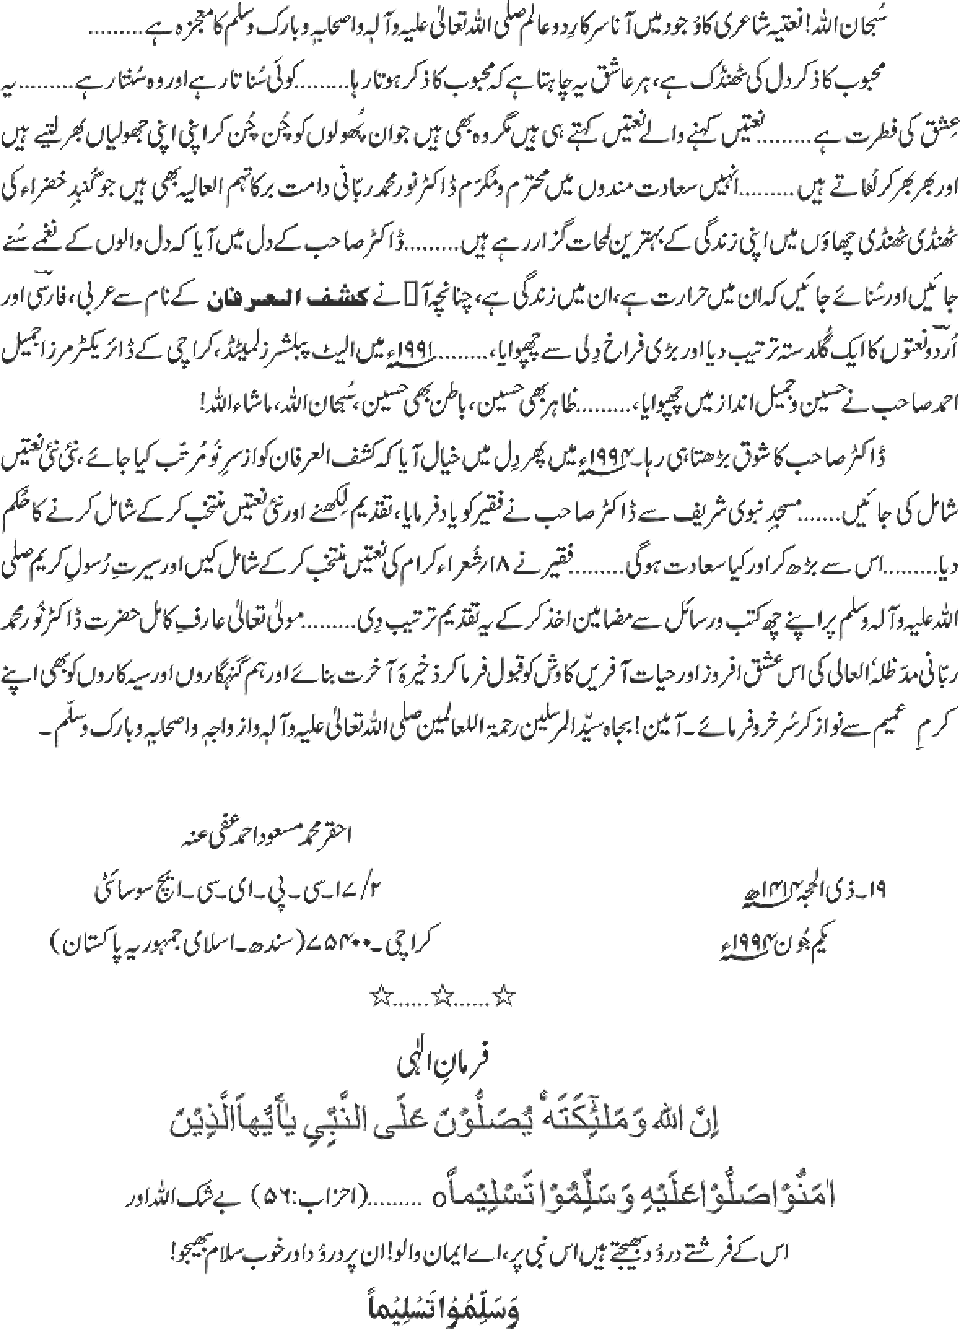 سُبحان اللہ! نعتیہ شاعری کا وُجود میں آنا سرکارِ دوعالم صلی اللہ تعالیٰ علیہ وآلہٖ واصحابہٖ وبارک وسلم کا معجزہ ہے.........
محبوب کا ذکر دل کی ٹھنڈک ہے، ہر عاشق یہ چاہتا ہے کہ محبوب کا ذکر ہوتا رہا.........کوئی سُناتا رہے اور وہ سُنتا رہے.........یہ
عِشق کی فطرت ہے.........نعتیں کہنے والے نعتیں کہتے ہی ہیں مگر وہ بھی ہیں جو ان پُھولوں کو چُن چُن کر اپنی اپنی جھولیاں بھر لیتے ہیں
اور بھر بھر کر لُٹاتے ہیں.........انُہیں سعادت مندوں میں محترم و مکرّم ڈاکٹر نور محمد ربّانی دامت برکاتہم العالیہ بھی ہیں جو گنبدِ خضراء کی
ٹھنڈی ٹھنڈی چھاؤں میں اپنی زندگی کے بہترین لمحات گزار رہے ہیں.........ڈاکٹر صاحب کے دل میں آیا کہ دل والوں کے نغمے سُنے
جائیں اور سُنائے جائیں کہ ان میں حرارت ہے، ان میں زندگی ہے، چنانچہ آ نے کشف العرفان کے نام سے عربی، فارسی اور
اُردو نعتوں کا ایک گُلدستہ ترتیب دیا اور بڑی فراخ دِلی سے چھپوایا،.........۱۹۹۱ء میں الیٹ پبلشرز لمیٹڈ، کراچی کے ڈائریکٹر مرزا جمیل
احمد صاحب نے حسین و جمیل انداز میں چھپوایا،.........ظاہر بھی حسین، باطن بھی حسین، سُبحان اللہ، ماشاء اللہ!
ڈاکٹر صاحب کا شوق بڑھتا ہی رہا۔ ۱۹۹۴ء میں پھر دِل میں خیال آیا کہ کشف العرفان کو از سرِ نَو مُرتّب کیا جائے، نئی نئی نعتیں
شامل کی جائیں.......مسجدِ نبوی شریف سے ڈاکٹر صاحب نے فقیر کو یاد فرمایا، تقدیم لِکھنے اور نئی نعتیں منتخب کر کے شامل کرنے کا حُکم
دیا.........اس سے بڑھ کر اور کیا سعادت ہوگی.........فقیر نے ۱۸؍شُعراء کرام کی نعتیں منتخب کر کے شامل کیں اور سیرتِ رُسولِ کریم صلی
اللہ علیہ وآلہٖ وسلم پر اپنے چھ کتب و رسائل سے مضامین اخذ کر کے یہ تقدیم ترتیب دِی.........مولیٰ تعالیٰ عارفِ کامل حضرت ڈاکٹر نُور محمد
ربّانی مدّظلہُ العالی کی اس عشق افروز اور حیات آفریں کاوش کو قبول فرما کر ذخیرۂ آخرت بنائے اور ہم گنہگاروں اور سیہ کاروں کو بھی اپنے
کرمِ عمیم سے نواز کر سُرخرو فرمائے۔ آمین! بجاہ سیّد المرسلین رحمۃ اللعالمین صلی اللہ تعالیٰ علیہ وآلہٖ وازواجہٖ واصحابہٖ وبارک وسلّم۔
احقر محمد مسعود احمد عفی عنہ
۱۹۔ ذی الحجہ ۱۴۱۴ھ
۲/۱۷۔سی۔پی۔ای۔سی۔ایچ سوسائٹی
یکم جُون ۱۹۹۴ء
کراچی۔۷۵۴۰۰ (سندھ۔اسلامی جمہوریہ پاکستان)
☆......☆......☆
فرمانِ الٰہی
اِنَّ اللہ وَمَلٰٓئِکَتَہٗ یُصَلُّوْنَ عَلَی النَّبِّیِ یٰاَیُّھَا الَّذِیْنَ
اٰمَنُوْا صَلُّوْا عَلَیْہِ وَسَلِّمُوْا تَسْلِیْماً۝ .........(احزاب:۵۶) بے شک اللہ اور
اس کے فرشتے درؤد بھیجتے ہیں اس نبی پر، اے ایمان والو! ان پر درؤد اور خوب سلام بھیجو!
وَسَلِّمُوْا تَسْلِیْماً